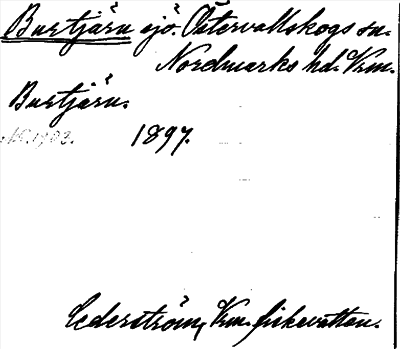 Burtjärn sjö. Östervallskogs sn.
Nordmarks hd. Vrm.
Burtjärn.
1897.
Cederström, Vrm. fiskevatten.